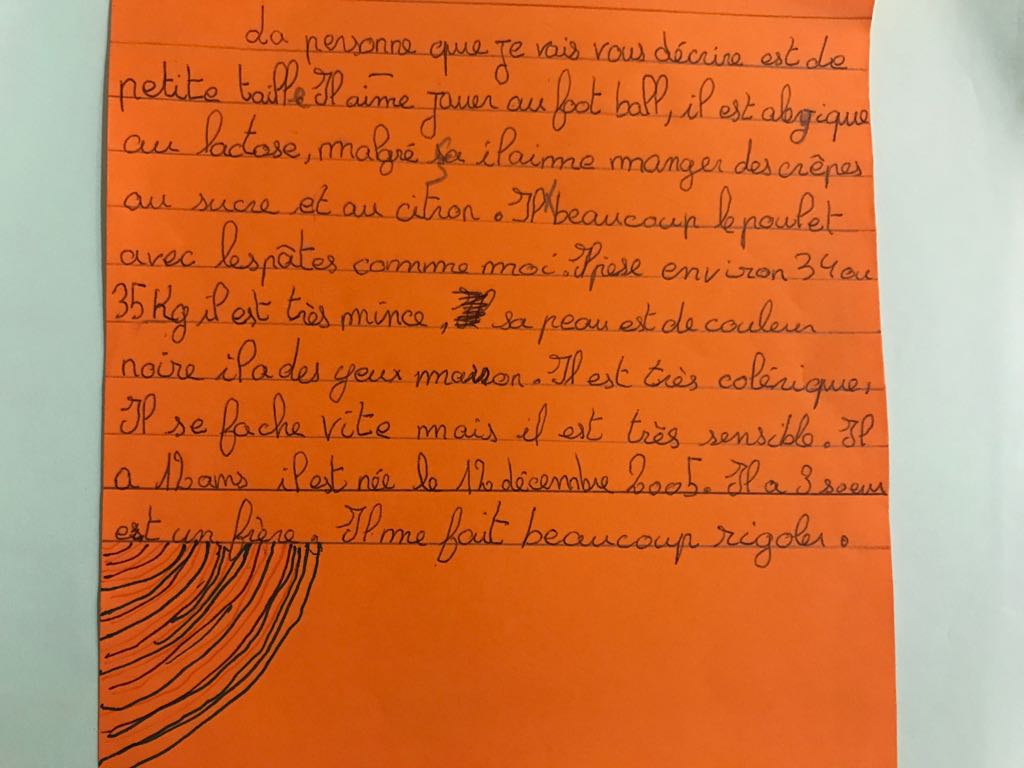 La personne que je vais vous décrire est de
petite taille Il aime jouer au foot ball, il est alergique
au lactose, malgré sa il aime manger des crêpes
au sucre et au citron. Il beaucoup le poulet
avec les pâtes comme moi. Il pese environ 34 ou
35 Kg il est très mince, sa peau est de couleur
noire il a des yeux marron. Il est très colérique,
Il se fache vite mais il est très sensible. Il
a 12 ans il est née le 12 décembre 2005. Il a 3 soeur
est un frère. Il me fait beaucoup rigoler.